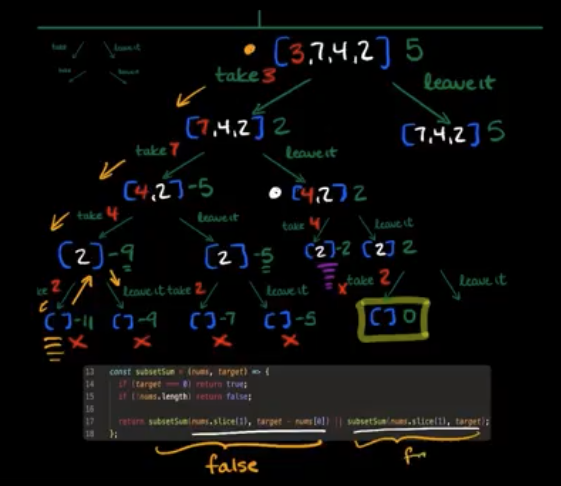 take leave it
take leave it
[3,7,4,2] 5
take 3 leave it
[7,4,2] 2 [7,4,2] 5
take 7 leave it
[4,2] -5 [4,2] 2
take 4 leave it take 4 leave it
[2] -9 [2] -5 [2] -2 [2] 2
ke 2 leave it take 2 leave it x take 2 leave it
[] -11 [] -9 [] -7 [] -5 [] 0
x x x x
13 const subsetSum = (nums, target) => {
14 if (target === 0) return true;
15 if (!nums.length) return false;
16
17 return subsetSum(nums.slice(1), target - nums[0]) || subsetSum(nums.slice(1), target);
18 };
false